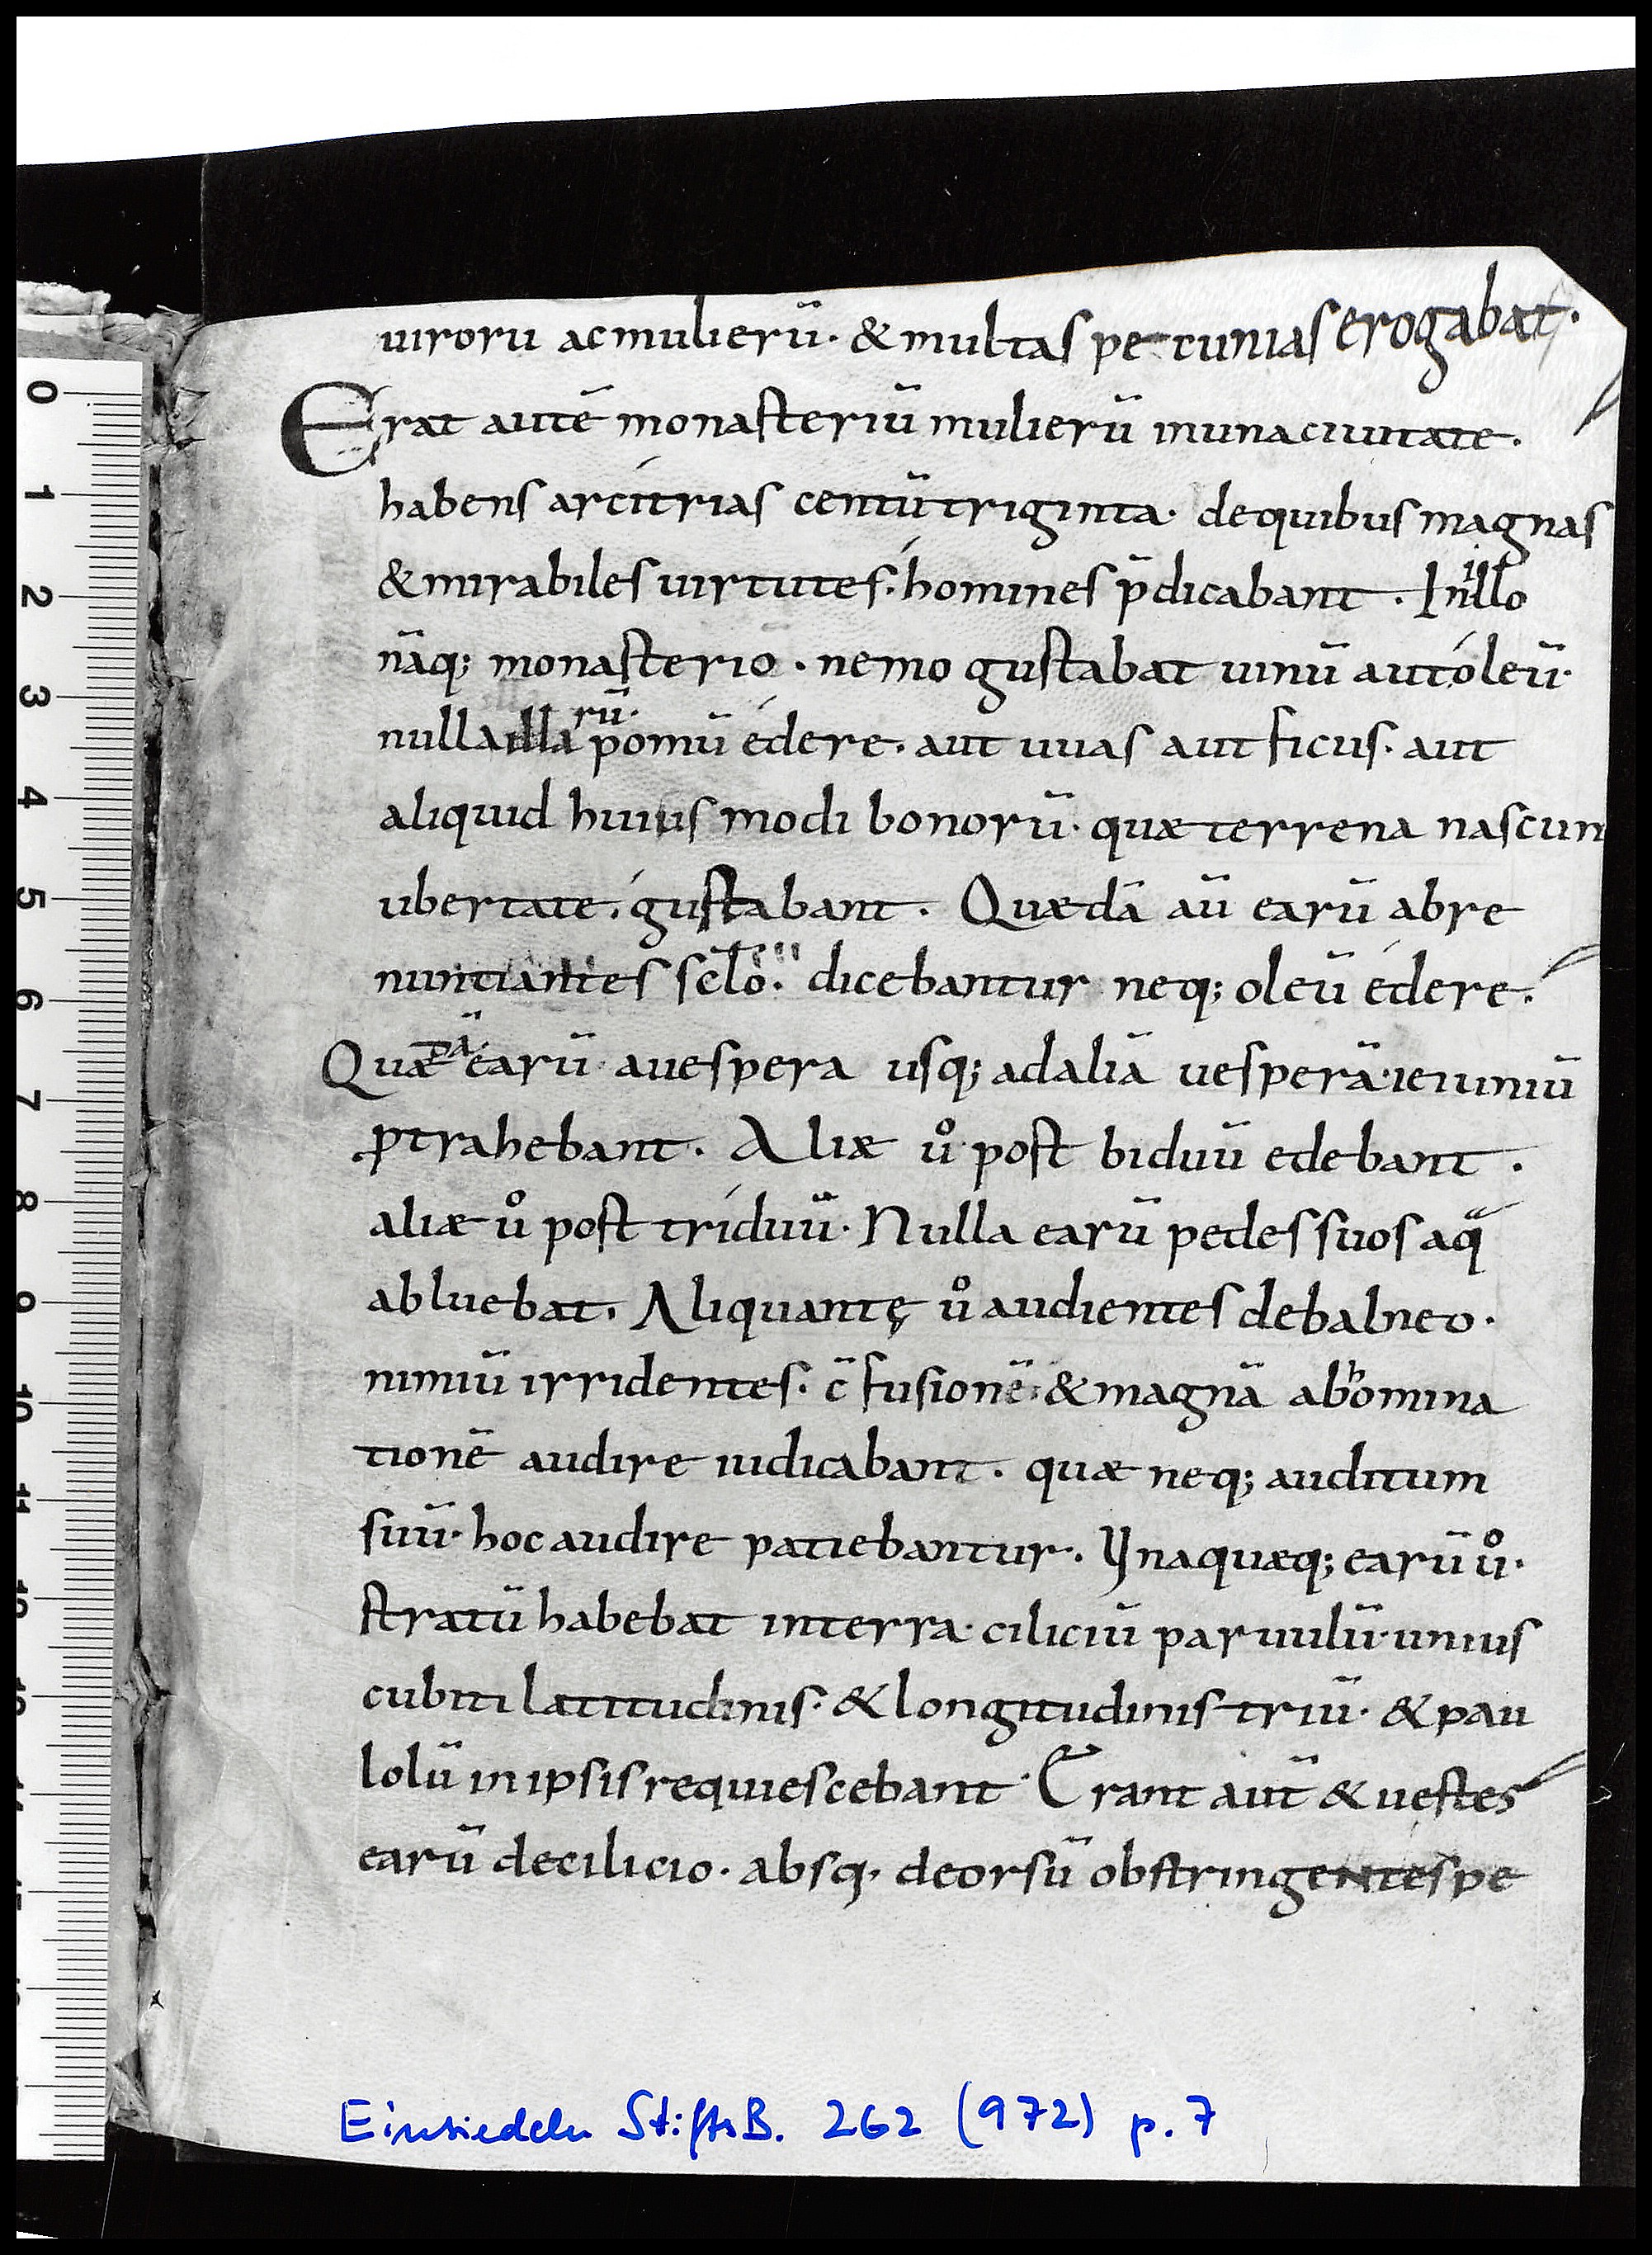 uiroru ac mulierū· & multas pecunias erogabat·
Erat autē monasteriū mulierū in una ciuitate·
habens arcitrias centū triginta· de quibus magnas
& mirabiles uirtutes· homines p̄dicabant· In illo
nāq; monasterio· nemo gustabat uinū aut oleū·
nulla illarū· pomū edere· aut uuas aut ficus· aut
aliquid huius modi bonorū· quae terrena nascun
ubertate· gustabant· Quaedā aū earū abre
nuntiantes sc̄lo· dicebantur neq; oleū edere·
Quaedā earū a uespera usq; ad aliā uesperā· ieiuniū
ꝓtrahebant· Aliae ů post biduū edebant·
aliae ů post triduū· Nulla earū pedes suos aqͣ
abluebat· Aliquantę ů audientes de balneo·
nimiū irridentes· c̄fusionē· & magnā abʰomina
tionē audire iudicabant· quae neq; auditum
suū· hoc audire patiebantur· Vnaquaeq; earū ů·
stratū habebat in terra· ciliciū paruulū· unius
cubiti latitudinis· & longitudinis triū· & pau
lolū in ipsis requiescebant· Erant aūt & uestes
earū de cilicio· absq· deorsū obstringentes pe
0
1
2
3
4
5
6
7
8
9
10
11
12
13
14
15
Einsiedeln StiftsB. 262 (972) p. 7